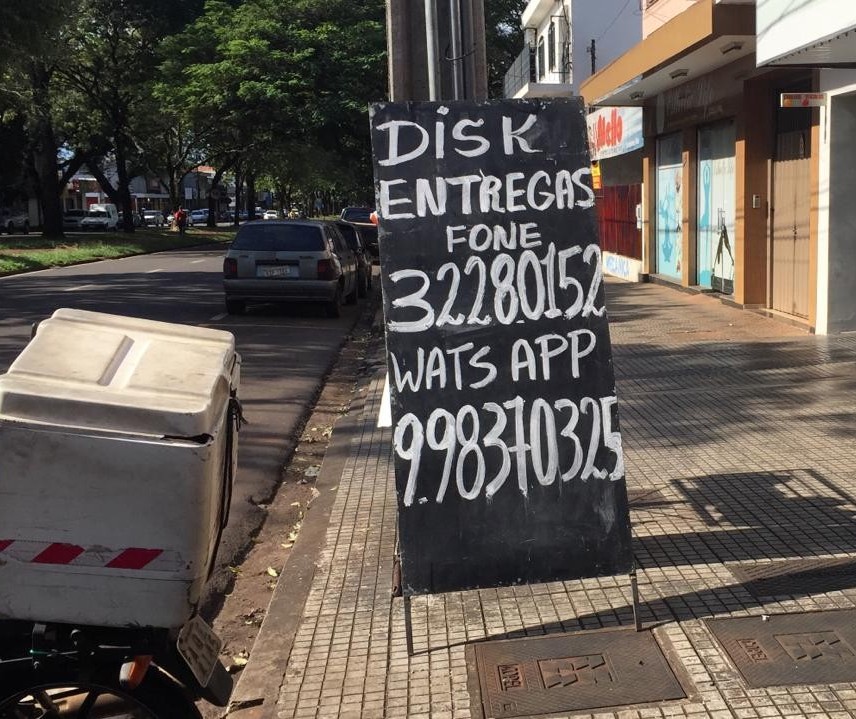 DISK
ENTREGAS
FONE
32280152
WATS APP
998370325